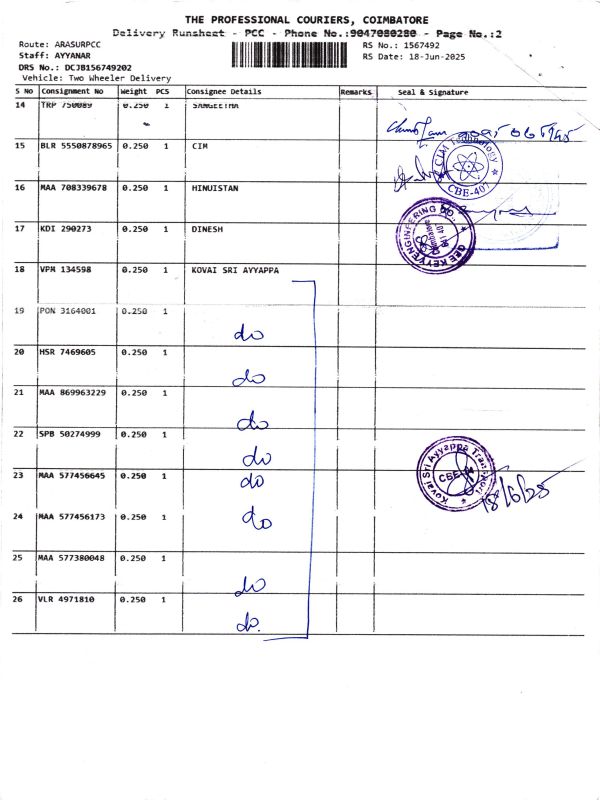 THE PROFESSIONAL COURIERS, COIMBATORE
Delivery Runsheet - PCC - Phone No.:9047080280 - Page No.:2
Route: ARASURPCC
RS No.: 1567492
Staff: AYYANAR
RS Date: 18-Jun-2025
DRS No.: DCJB156749202
Vehicle: Two Wheeler Delivery
S No Consignment No Weight PCS Consignee Details Remarks Seal & Signature
14 TRP 750089 0.250 1 SANGEETHA
15 BLR 5550878965 0.250 1 CIM
CIM Technology
CBE-407
16 MAA 708339678 0.250 1 HINUISTAN
17 KDI 290273 0.250 1 DINESH
GEE KEYY ENGINEERING CO.
Coimbatore
641 407
18 VPM 134598 0.250 1 KOVAI SRI AYYAPPA
19 PON 3164001 0.250 1 do
20 HSR 7469605 0.250 1 do
21 MAA 869963229 0.250 1 do
22 SPB 50274999 0.250 1 do
Kovai Sri Ayyappa Transport
23 MAA 577456645 0.250 1 do
18/6/25
24 MAA 577456173 0.250 1 do
25 MAA 577380048 0.250 1 do
26 VLR 4971810 0.250 1 do.